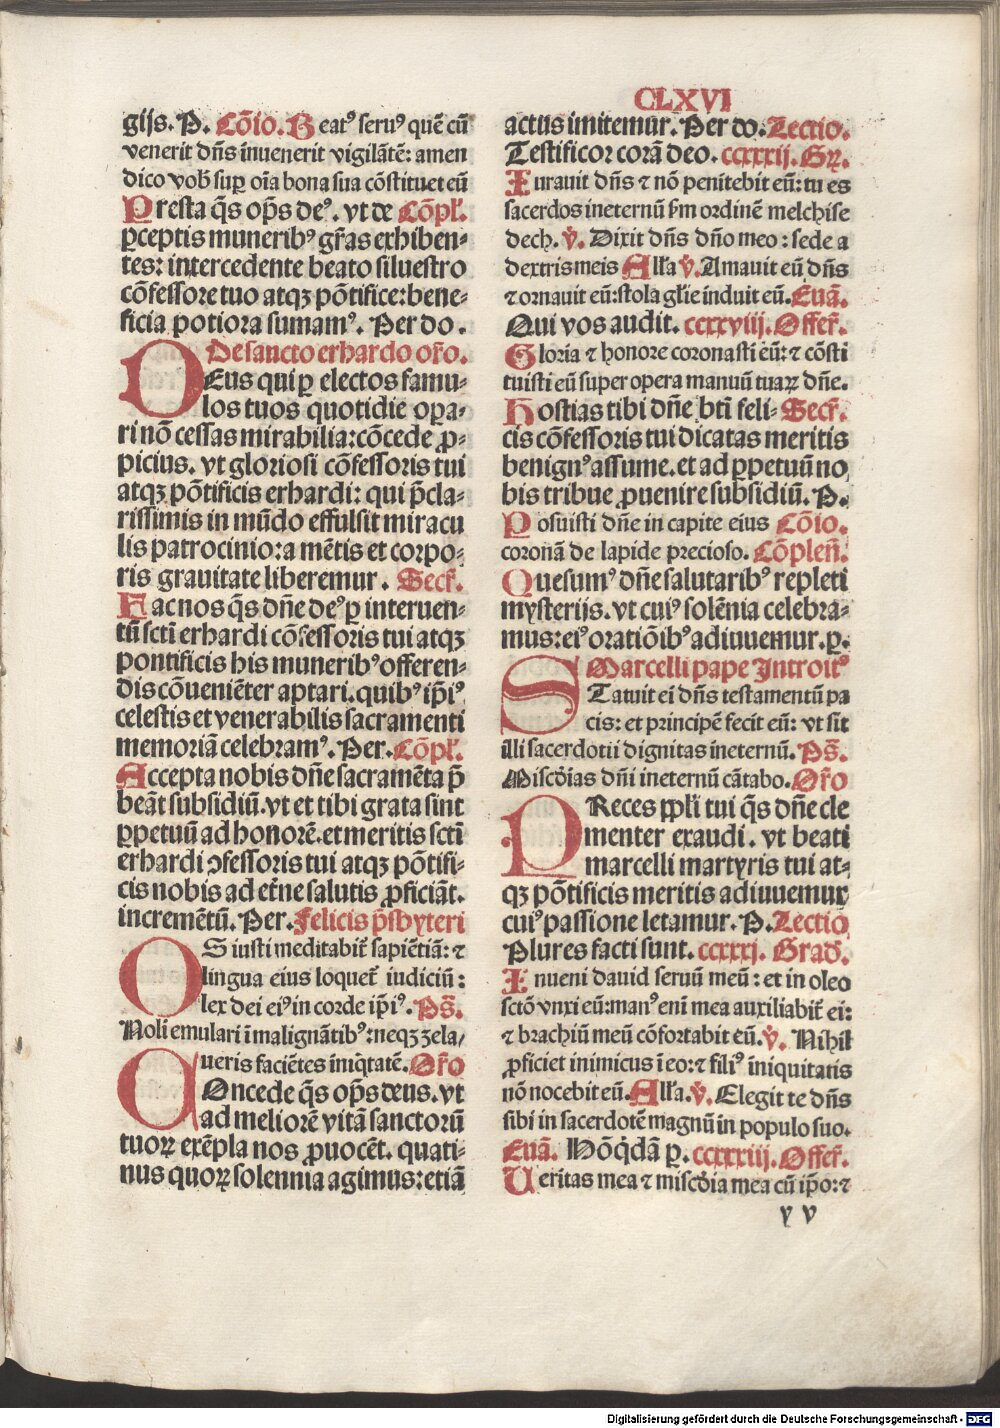 CLXVI
gijs. P. Cōio. Beatꝰ seruꝰ quē cū
venerit dn̄s inuenerit vigilātē: amen
dico vob̄ suꝑ oīa bona sua cōstituet eū
Presta q̄s op̄s deꝰ. vt de Cōpl̄.
ꝑceptis muneribꝰ gr̄as exhiben⸗
tes: intercedente beato siluestro
cōfessore tuo atqꝫ pōtifice: bene⸗
ficia potiora sumamꝰ. Per do.
De sancto erhardo or̄o.
DEus qui ꝑ electos famu⸗
los tuos quotidie oꝑa⸗
ri nō cessas mirabilia: cōcede ꝓ⸗
picius. vt gloriosi cōfessoris tui
atqꝫ pōtificis erhardi: qui p̄cla⸗
rissimis in mūdo effulsit miracu
lis patrocinio: a mētis et corpo⸗
ris grauitate liberemur. Secr̄.
Fac nos q̄s dn̄e deꝰ ꝑ interuen⸗
tū sctī erhardi cōfessoris tui atqꝫ
pontificis his muneribꝰ offeren⸗
dis cōueniēter aptari. quibꝰ ip̄iꝰ
celestis et venerabilis sacramenti
memoriā celebramꝰ. Per. Cōpl̄.
Accepta nobis dn̄e sacramēta p̄
beāt subsidiū. vt et tibi grata sint
ꝑpetuū ad honorē. et meritis sctī
erhardi ꝯfessoris tui atqꝫ pōtifi⸗
cis nobis ad et̄ne salutis ꝓficiāt.
incremētū. Per. Felicis p̄sbyteri
OS iusti meditabit̄ sapiētiā: ⁊
lingua eius loquet̄ iudiciū:
lex dei eiꝰ in corde ip̄iꝰ. Ps̄.
Noli emulari ī malignātibꝰ: neqꝫ zela/
ueris faciētes īniq̄tatē. Or̄o
COncede q̄s op̄s deus. vt
ad meliorē vitā sanctorū
tuoꝝ exēpla nos ꝓuocēt. quati⸗
nus quoꝝ solennia agimus: etiā
actus imitemur. Per do. Lectio.
Testificor corā deo. ccxxxij. Gr̄.
Iurauit dn̄s ⁊ nō penitebit eū: tu es
sacerdos ineternū s̄m ordinē melchise
dech. v̄. Dixit dn̄s dn̄o meo: sede a
dextris meis All̄a v̄. Amauit eū dn̄s
⁊ ornauit eū: stola gl̄ie induit eū. Euā.
Qui vos audit. ccxxviij. Offer̄.
Gloria ⁊ honore coronasti eū: ⁊ cōsti
tuisti eū super opera manuū tuaꝝ dn̄e.
Hostias tibi dn̄e bt̄i feli⸗ Secr̄.
cis cōfessoris tui dicatas meritis
benignꝰ assume. et ad ꝑpetuū no
bis tribue ꝓuenire subsidiū. P.
Posuisti dn̄e in capite eius Cōio.
coronā de lapide precioso. Cōplen̄.
Quesumꝰ dn̄e salutaribꝰ repleti
mysterijs. vt cuiꝰ solēnia celebra⸗
mus: eiꝰ oratiōibꝰ adiuuemur. ꝑ.
Marcelli pape Introitꝰ
STatuit ei dn̄s testamentū pa
cis: et principē fecit eū: vt sit
illi sacerdotii dignitas ineternū. Ps̄.
Miscd̄ias dn̄i ineternū cātabo. Or̄o
PReces ppl̄i tui q̄s dn̄e cle
menter exaudi. vt beati
marcelli martyris tui at⸗
qꝫ pōtificis meritis adiuuemur
cuiꝰ passione letamur. P. Lectio
Plures facti sunt. ccxxxj. Grad̄.
Inueni dauid seruū meū: et in oleo
sctō vnxi eū: manꝰ eni mea auxiliabit̄ ei:
⁊ brachiū meū cōfortabit eū. v̄. Nihil
ꝓficiet inimicus ī eo: ⁊ filiꝰ īniquitatis
nō nocebit eū. All̄a. v̄. Elegit te dn̄s
sibi in sacerdotē magnū in populo suo.
Euā. Hōq̇dā ꝑ. ccxxxiij. Offer̄.
Ueritas mea ⁊ miscd̄ia mea cū ip̄o: ⁊
y v
Digitalisierung gefördert durch die Deutsche Forschungsgemeinschaft - DFG